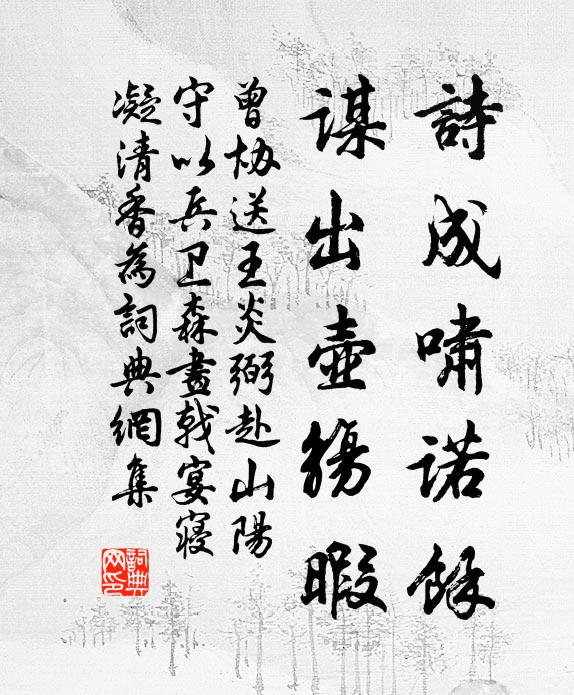 詩成嘯諾餘
謀出壺觴暇
曾协送王炎弼赴山陽
守以兵卫森畫戟宴寢
凝清香為詞典網集
詞典
网印